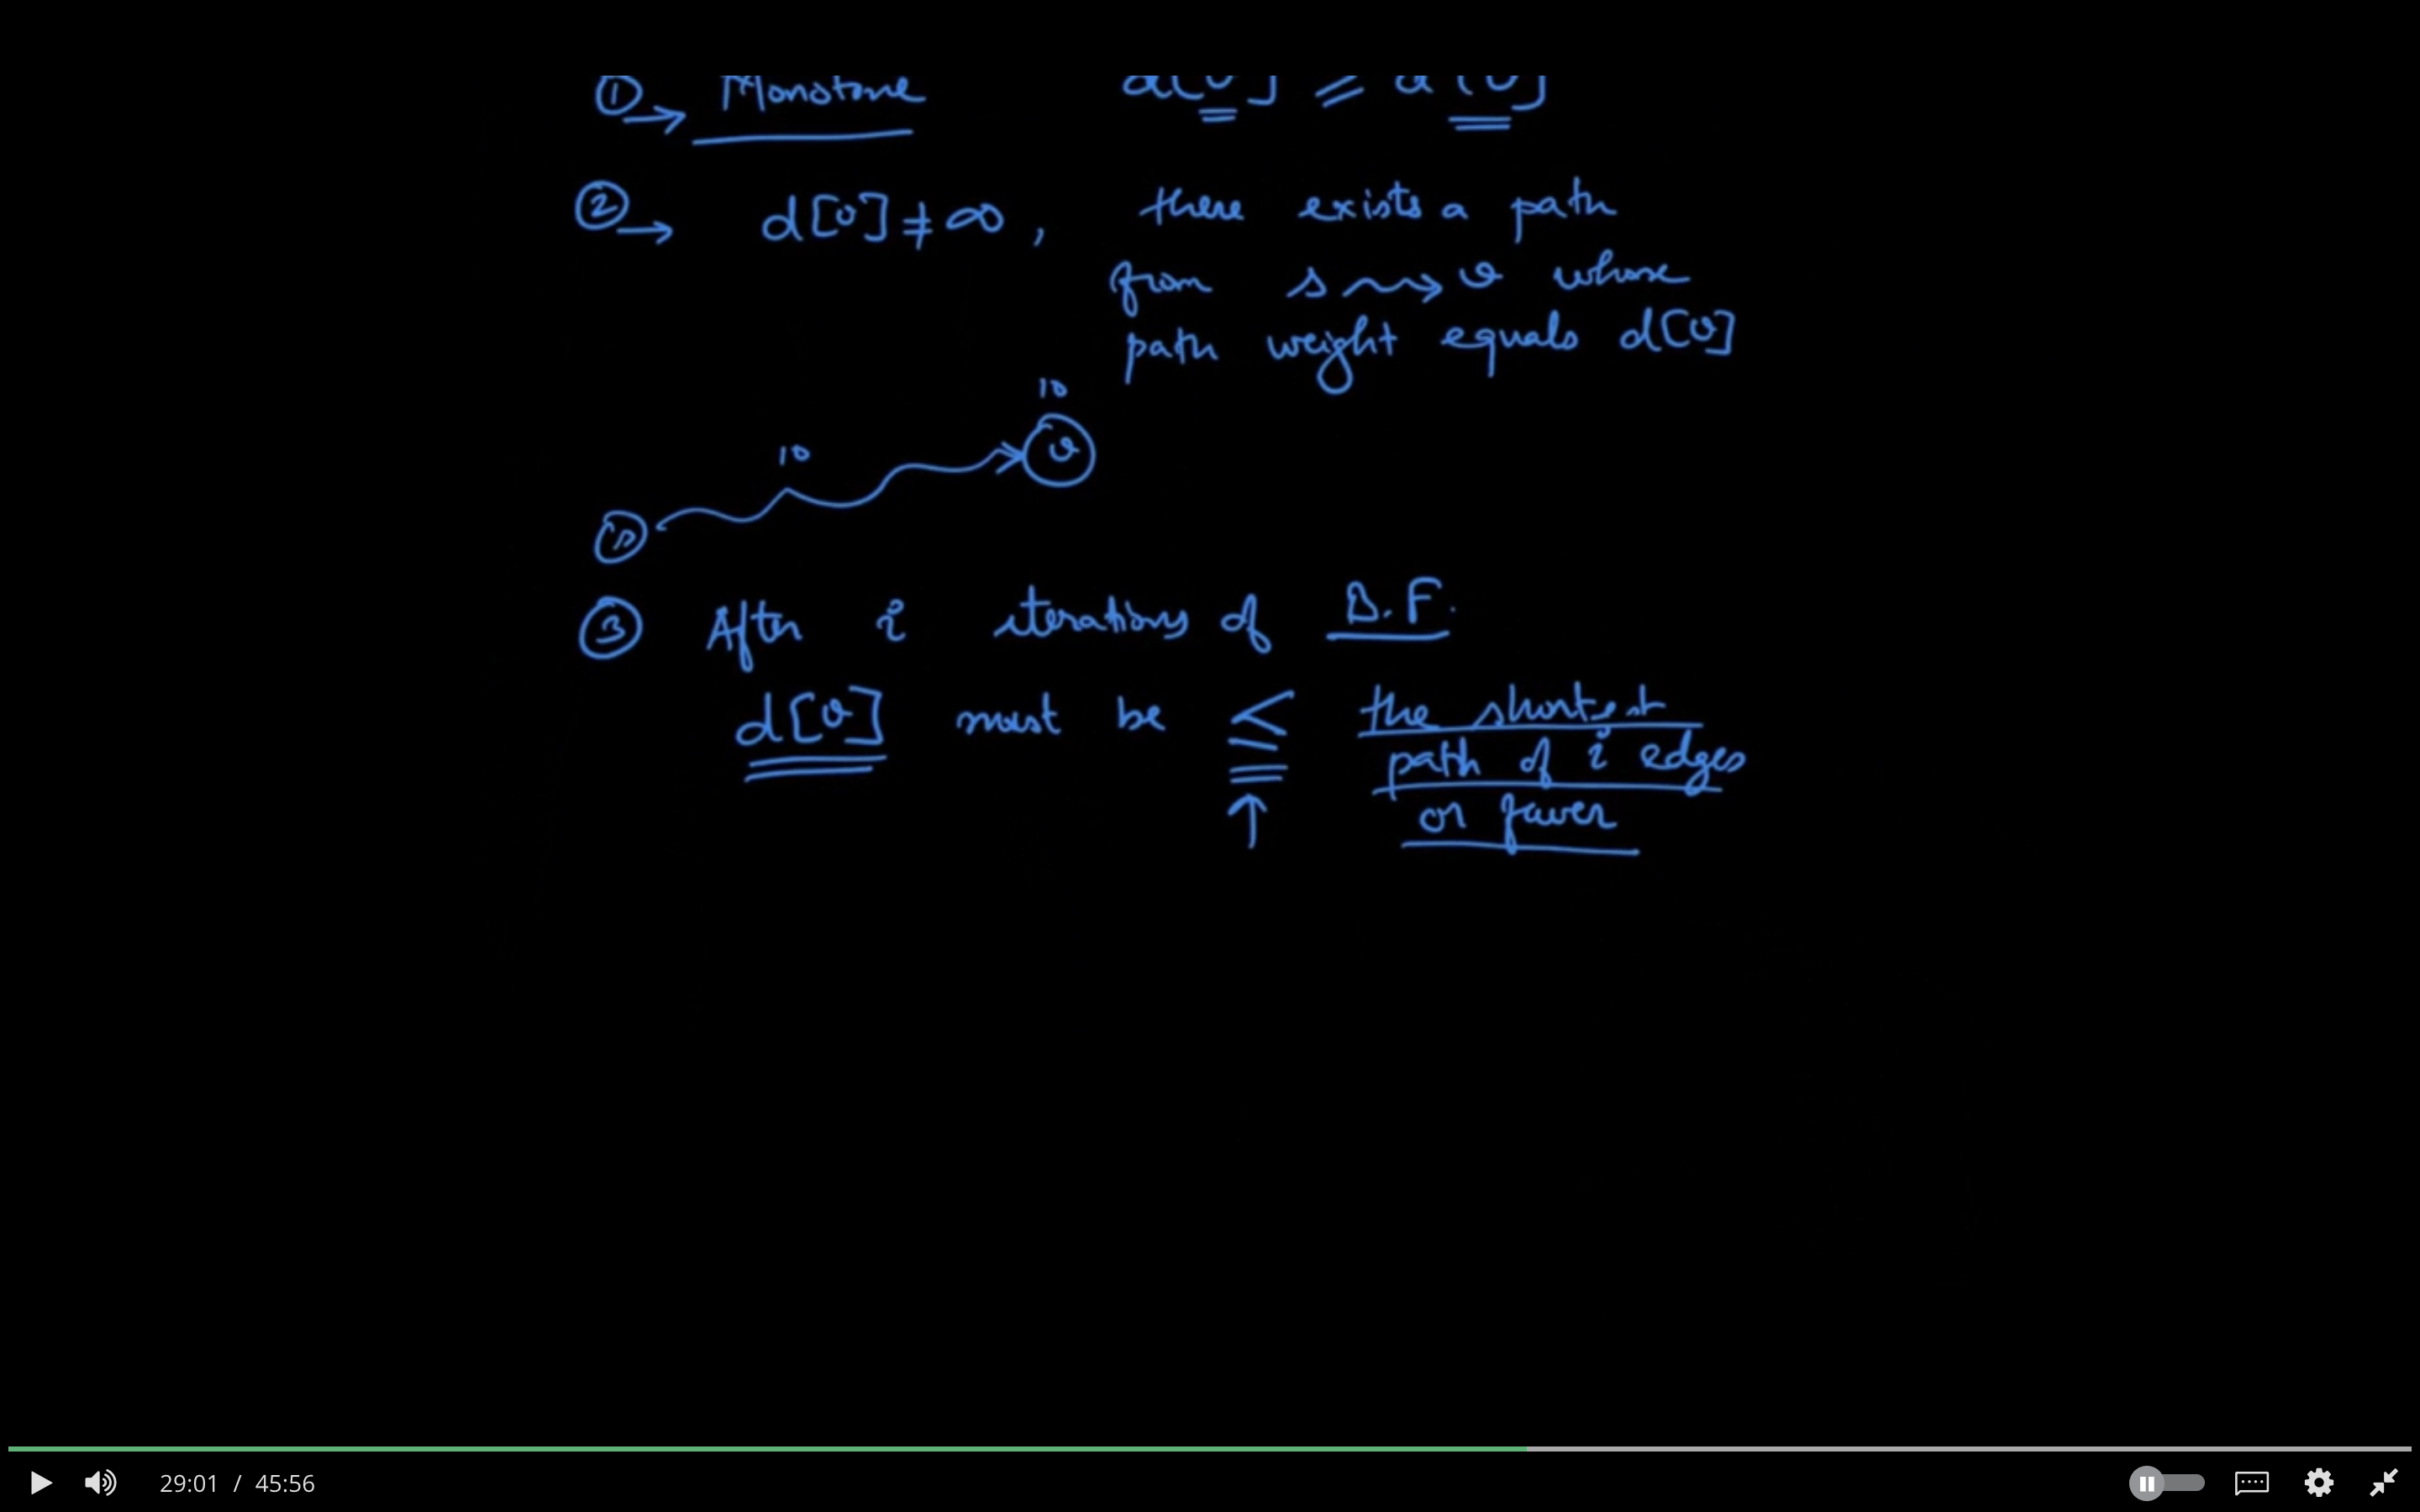 ① → Monotone d[v] ≥ d[v]
② → d[v] ≠ ∞, there exists a path
from s ⇝ v whose
path weight equals d[v]
10
10
v
s
③ After i iterations of B.F.
d[v] must be ≤ the shortest
path of i edges
or fewer
29:01 / 45:56